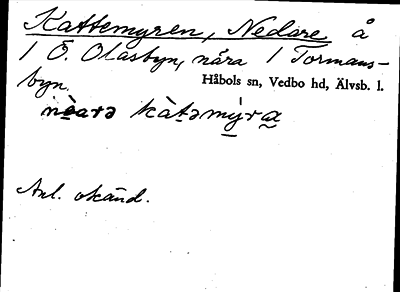 Kattemyren, Nedare å
1 Ö. Olasbyn, nära 1 Tormans-
byn.
Håbols sn, Vedbo hd, Älvsb. l.
Anl. okänd.